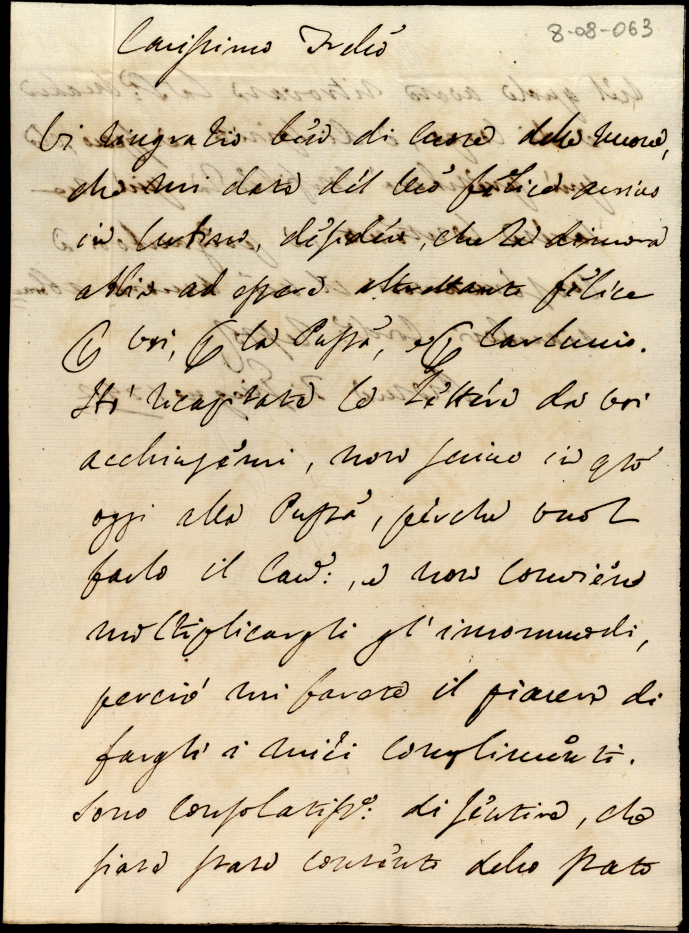 8-08-063
Carissimo Frello
Vi ringratio ben di cuore delle nuove,
che mi date del loro felice arrivo
in, desidero, che la dimora
abbia ad essere altrettanto felice
voi, la Puppa, e Carluccio.
Hò ricapitate le lettere da voi
acchiusemi, non scrivo in qto
oggi alla Puppa, perche vuol
farlo il Cav:, e non conviene
moltiplicargli gl'incommodi,
perciò mi farete il piacere di
fargli i miei complimenti.
Sono consolatisso: di sentire, che
siate stato contento dello stato